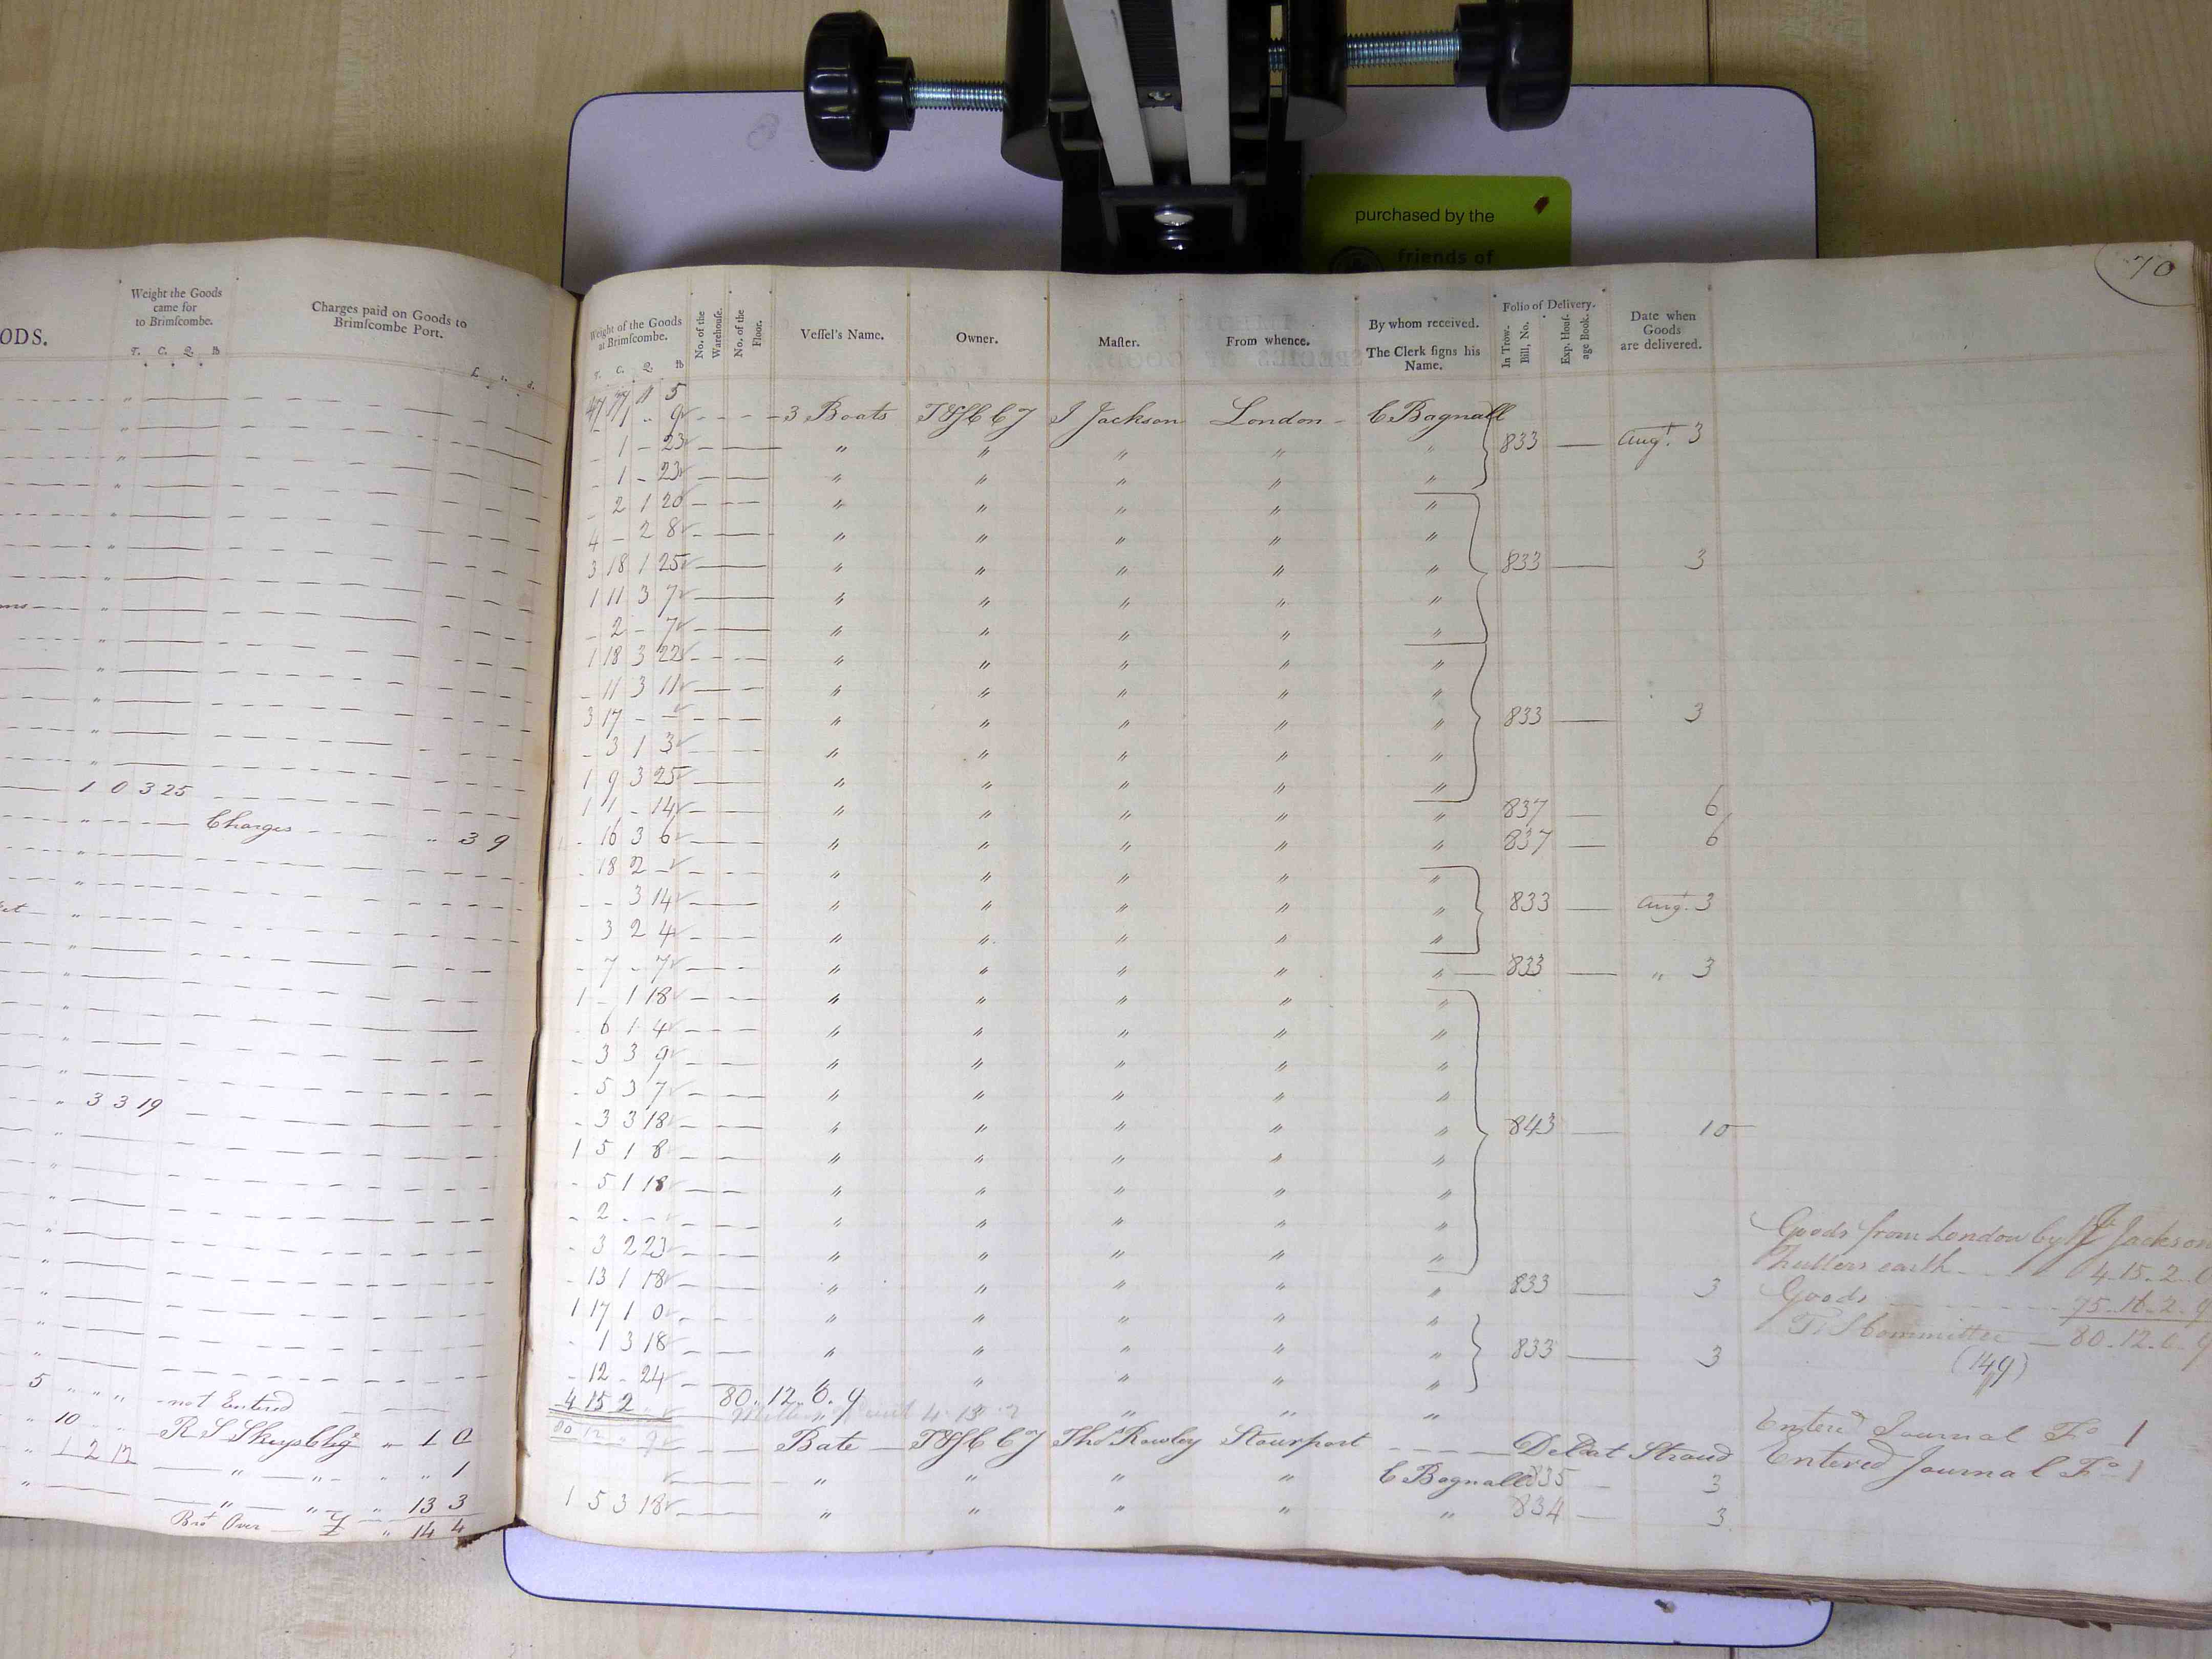 purchased by the
friends of
70
ODS.
Weight the Goods
came for
to Brimſcombe.
T. C. Q. lb
Charges paid on Goods to
Brimſcombe Port.
£ s. d.
1 0 3 25
Charges 3 9
3 3 19
5 " " " not Entered
" 10
" 1 2 12
" 1
13 3
Bro.t Over £ " 14 4
Weight of the Goods
at Brimſcombe.
T. C. Q. lb
No. of the
Warehouſe.
No. of the
Floor.
Veſſel's Name.
Owner.
Maſter.
From whence.
By whom received.
The Clerk ſigns his
Name.
Folio of Delivery.
In Trow.
Bill, No.
Exp. Houſ.
age Book.
Date when
Goods
are delivered.
- 1 " 9 3 Boats J Jackson London C Bagnall
- 1 - 23 " " " " " 833 Augt. 3
- 1 - 23 " " " " "
- 2 1 20 " " " " "
4 - 2 8 " " " " "
3 18 1 25 " " " " " 833 3
1 11 3 7 " " " " "
- 2 - 7 " " " " "
1 18 3 22 " " " " "
- 11 3 11 " " " " "
3 17 - - " " " " " 833 3
- 3 1 3 " " " " "
1 9 3 25 " " " " "
1 1 - 14 " " " " " 837 6
- 16 3 6 " " " " " 837 6
- 18 2 - " " " " "
- - 3 14 " " " " " 833 Augt. 3
- 3 2 4 " " " " "
- 7 - 7 " " " " " 833 " 3
1 - 1 18 " " " " "
- 6 1 4 " " " " "
- 3 3 9 " " " " "
- 5 3 7 " " " " "
- 3 3 18 " " " " " 843 10
1 5 1 8 " " " " "
- 5 1 18 " " " " "
- 2 - - " " " " "
- 3 2 23 " " " " "
- 13 1 18 " " " " " 833 3
1 17 1 0 " " " " "
- 1 3 18 " " " " " 833 3
- 12 - 24 " " " "
4 15 2 80. 12. 0. 9 " " " "
80 12 " 9 Bate Thos Rowley Stourport Del at Stroud
" " " " C Bagnall 835 3
1 5 3 18 " " " " " 834 3
Goods from London by J Jackson
earth 4. 15. 2. 0
Goods 75. 16. 2. 9
Committee 80. 12. 0. 9
(149)
Entered Journal Fo 1
Entered Journal Fo 1